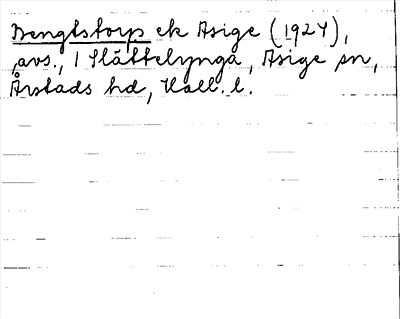 Bengtstorp ek Asige (1927),
avs., 1 Slättelynga, Asige sn,
Årstads hd, Hall. l.